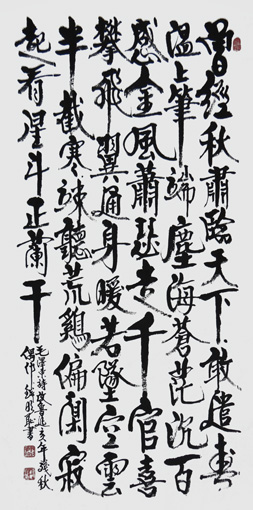 曾經秋肅臨天下敢遣春
温上筆端塵海蒼茫沉百
感金風蕭瑟走千官喜
攀飛翼通身暖若墜空雲
半截寒竦聽荒鷄偏闃寂
起看星斗正蘭干
毛澤東詩改魯迅亥年殘秋
偶作 書